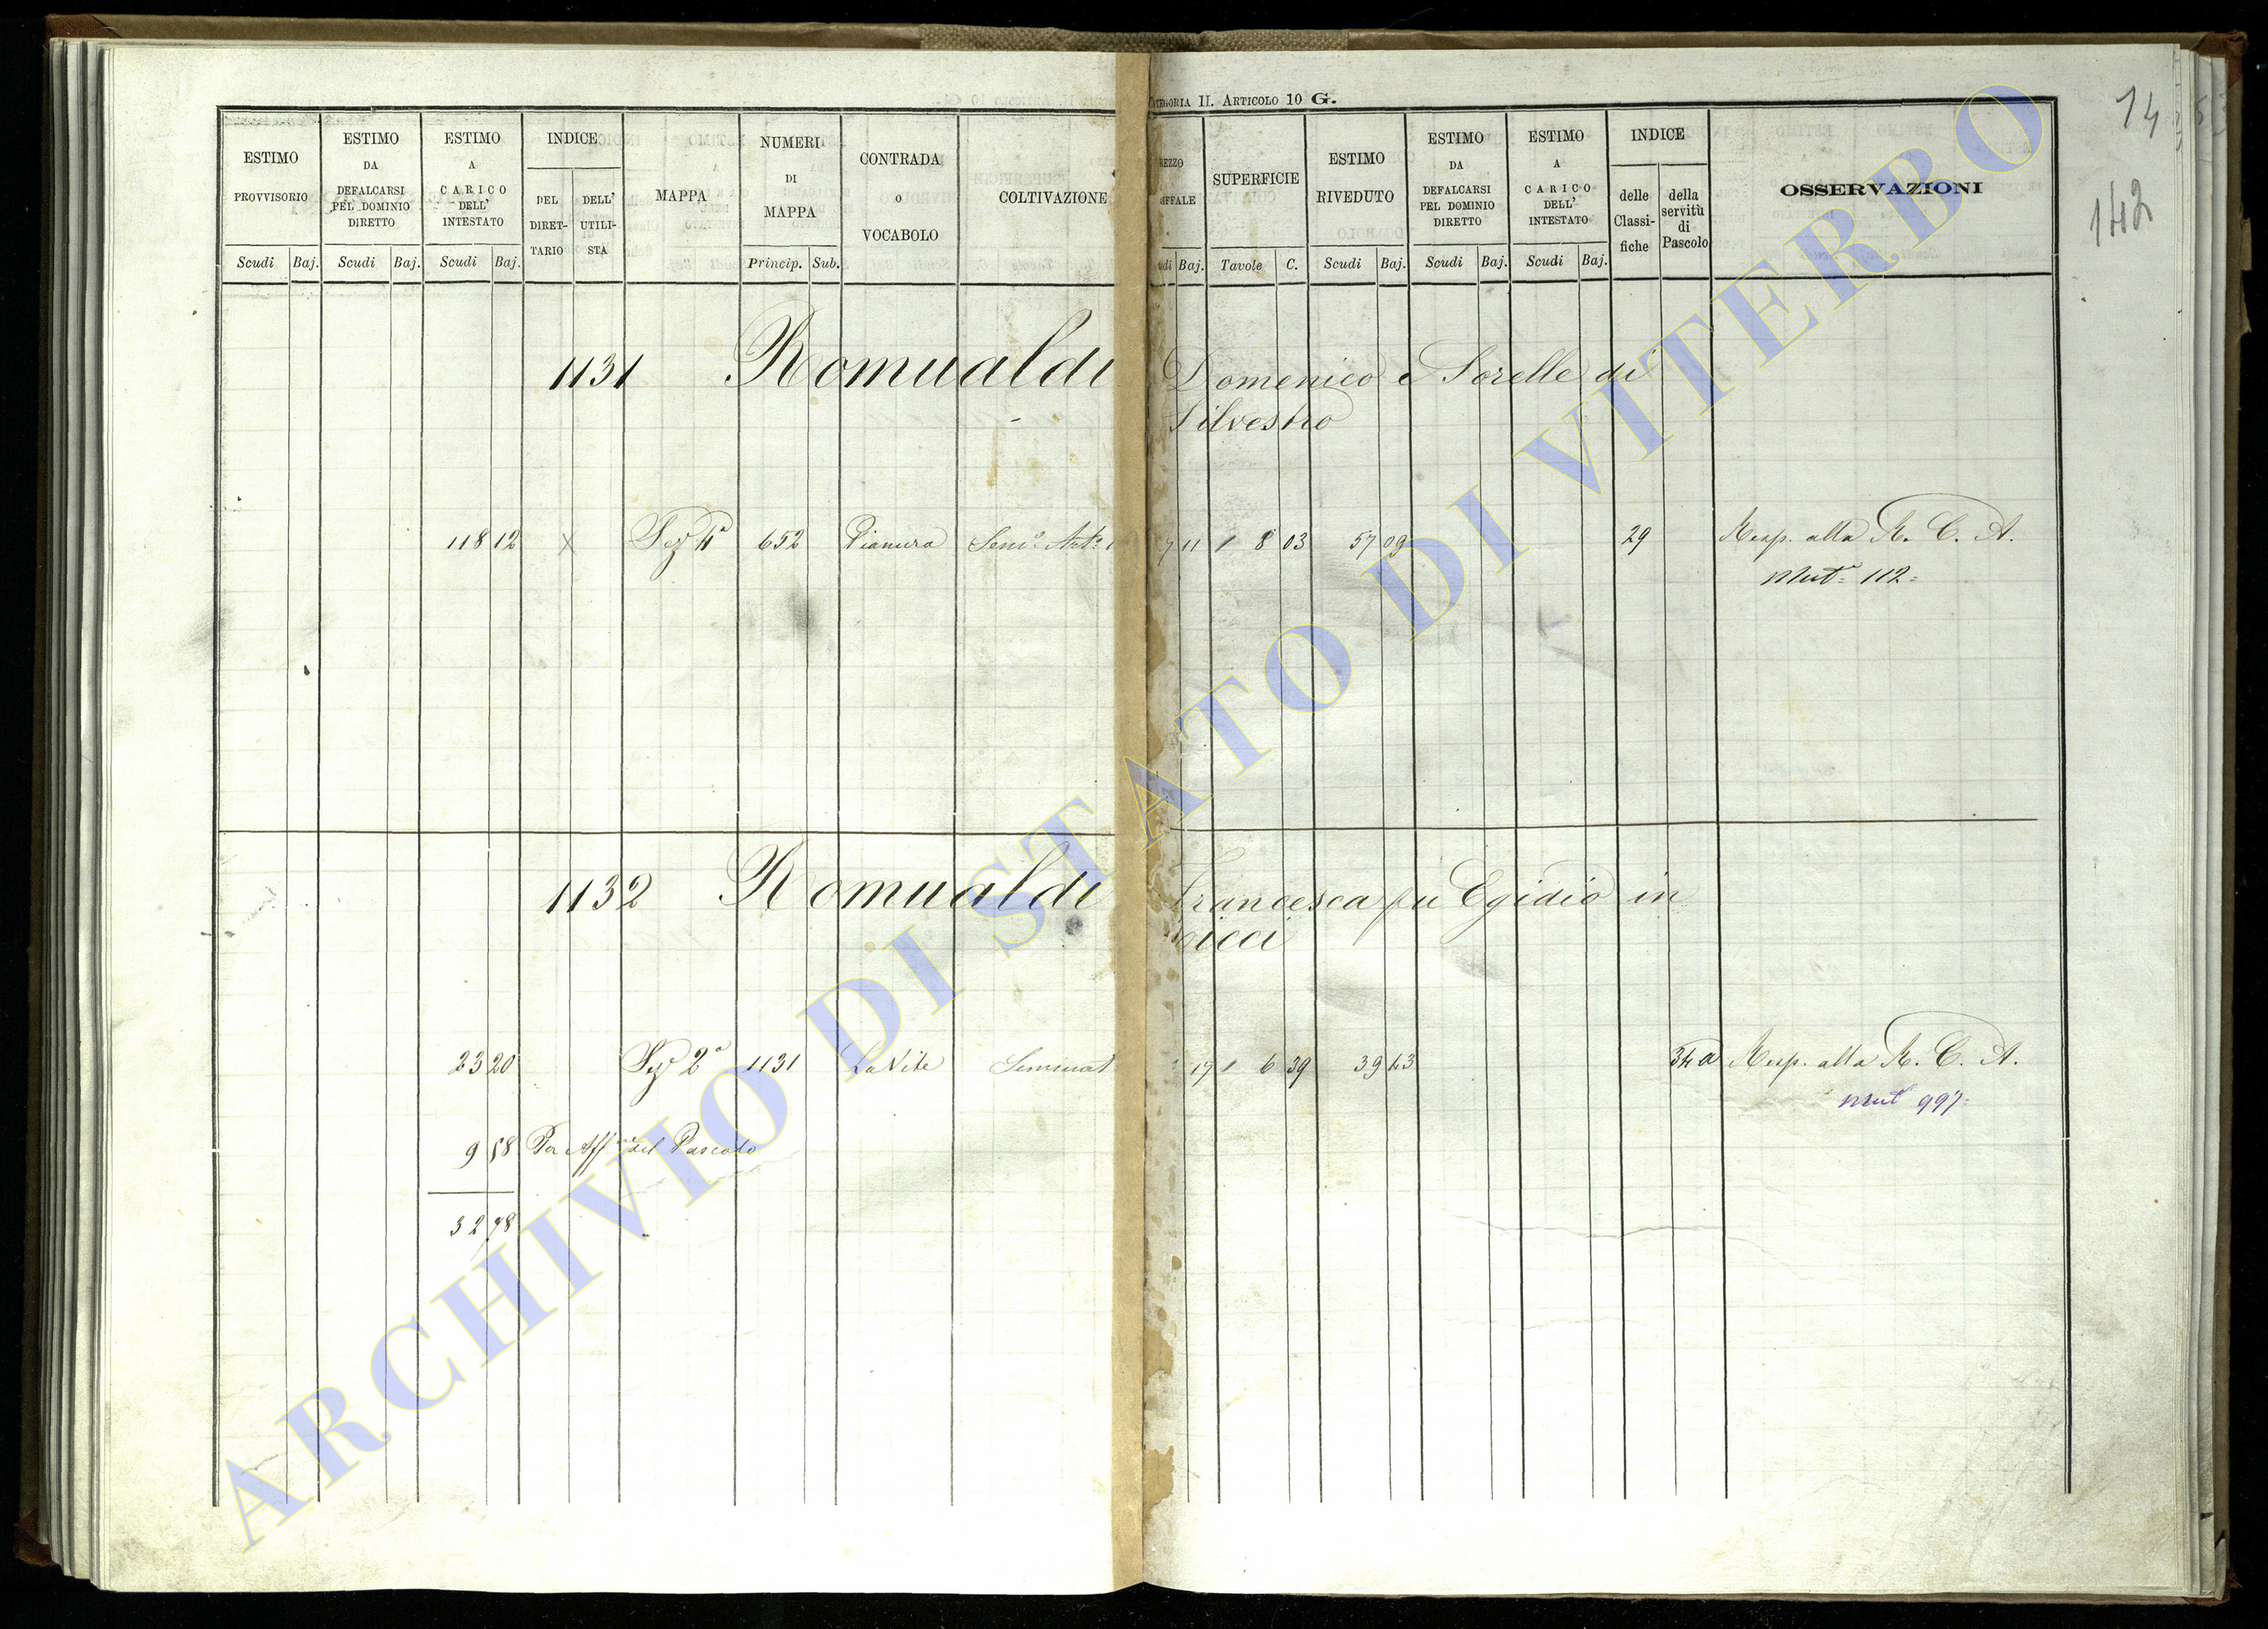 CATEGORIA II. ARTICOLO 10 G.
14
142
ESTIMO PROVVISORIO Scudi Baj.
ESTIMO DA DEFALCARSI PEL DOMINIO DIRETTO Scudi Baj.
ESTIMO A CARICO DELL' INTESTATO Scudi Baj.
INDICE DEL DIRETTARIO DELL' UTILISTA
MAPPA
NUMERI DI MAPPA Princip. Sub.
CONTRADA O VOCABOLO
COLTIVAZIONE
Baj.
SUPERFICIE Tavole C.
ESTIMO RIVEDUTO Scudi Baj.
ESTIMO DA DEFALCARSI PEL DOMINIO DIRETTO Scudi Baj.
ESTIMO A CARICO DELL' INTESTATO Scudi Baj.
INDICE delle Classifiche della servitù di Pascolo
OSSERVAZIONI
1131 Romualdi Domenico e Sorelle di
Silvestro
118 12 x Sez 4ª 652 Pianura 7 11 8 03 57 09 29 Resp. alla R. C. A.
Mutª 112
1132 Romualdi Francesca fu Egidio in
23 20 Sez 2ª 1131 La Vite Seminat 19 6 39 39 43 34 a Resp. alla R. C. A.
Mutª 997
9 58 Per Aff del Pascolo
32 78
ARCHIVIO DI STATO DI VITERBO